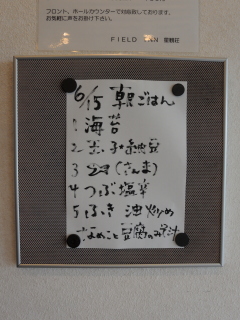 フロント、ホールカウンターで対応致しております。
お気軽に声をお掛け下さい。
FIELD INN
6/15 朝ごはん
1 海苔
2 玉子 納豆
3 (さんま)
4 つぶ塩辛
5 ふき 油炒め
なめこと豆腐のみそ汁